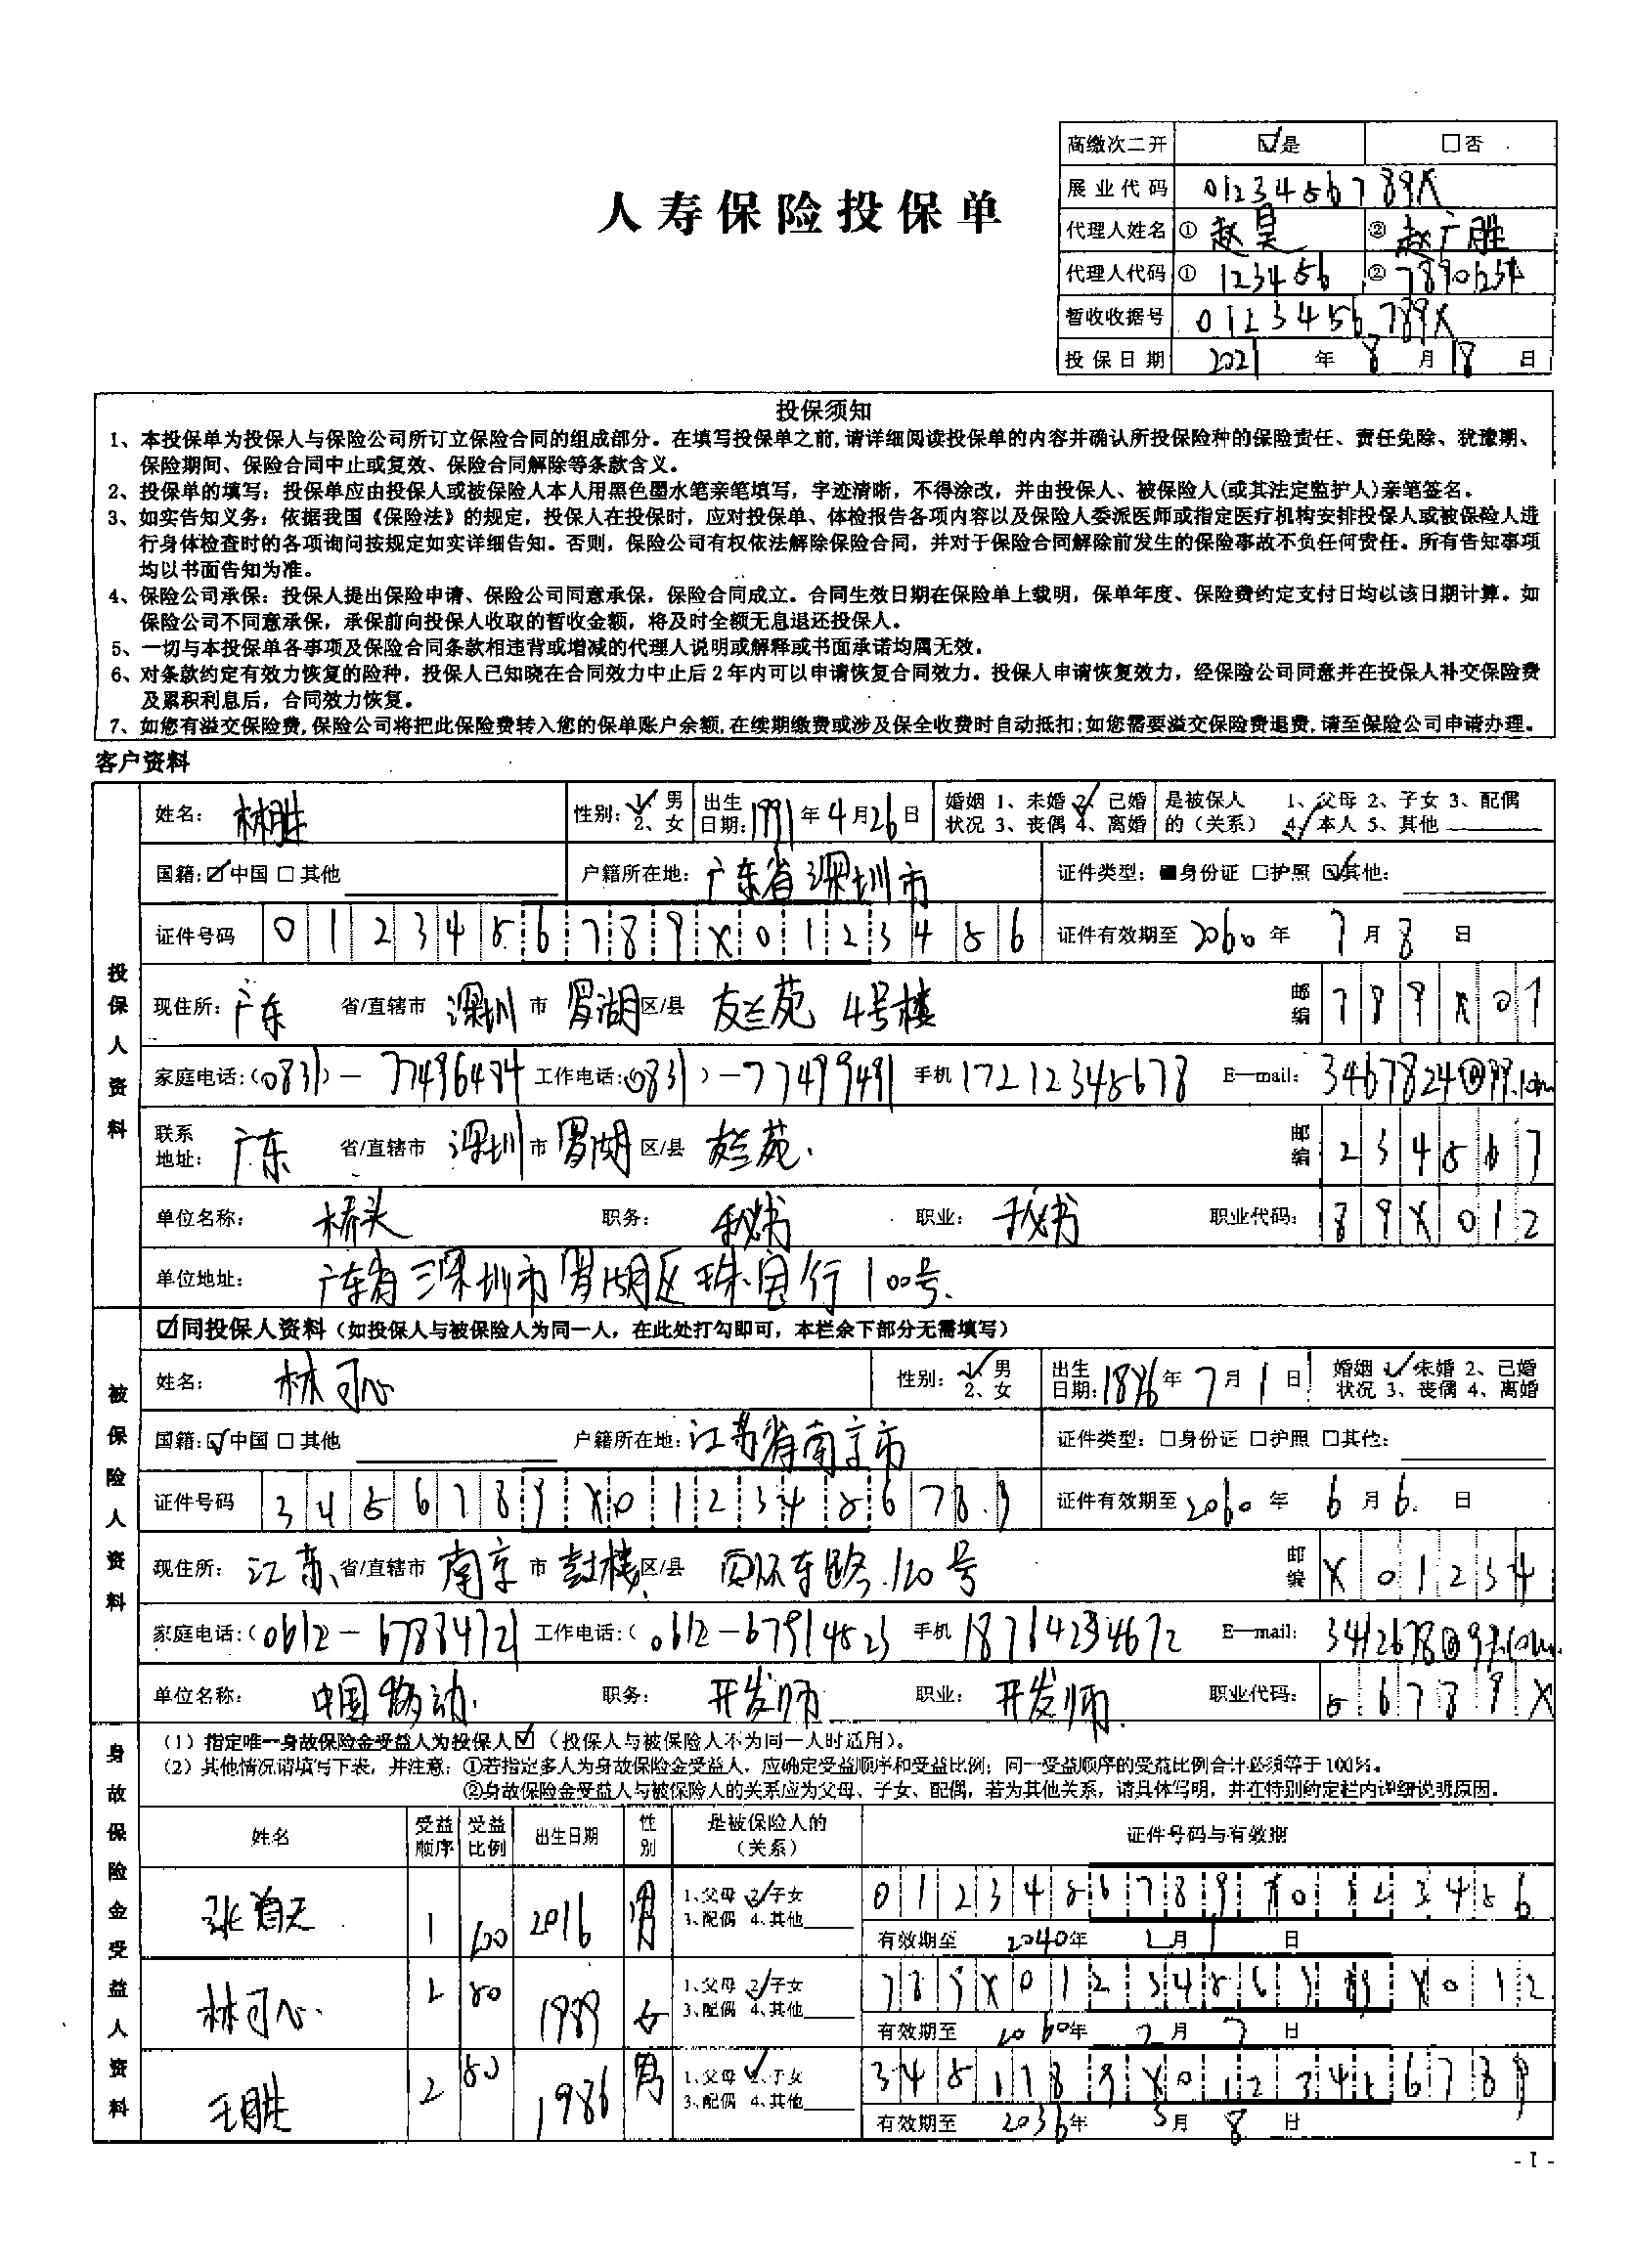 人寿保险投保单
高缴次二开 ☑是 □否
展业代码 0123456789X
代理人姓名 ① 赵昊 ② 赵广胜
代理人代码 ① 123456 ② 7890234
暂收收据号 0123456789X
投保日期 2021 年 8 月 18 日
投保须知
1、本投保单为投保人与保险公司所订立保险合同的组成部分。在填写投保单之前,请详细阅读投保单的内容并确认所投保险种的保险责任、责任免除、犹豫期、
保险期间、保险合同中止或复效、保险合同解除等条款含义。
2、投保单的填写：投保单应由投保人或被保险人本人用黑色墨水笔亲笔填写，字迹清晰，不得涂改，并由投保人、被保险人(或其法定监护人)亲笔签名。
3、如实告知义务：依据我国《保险法》的规定，投保人在投保时，应对投保单、体检报告各项内容以及保险人委派医师或指定医疗机构安排投保人或被保险人进
行身体检查时的各项询问按规定如实详细告知。否则，保险公司有权依法解除保险合同，并对于保险合同解除前发生的保险事故不负任何责任。所有告知事项
均以书面告知为准。
4、保险公司承保：投保人提出保险申请、保险公司同意承保，保险合同成立。合同生效日期在保险单上载明，保单年度、保险费约定支付日均以该日期计算。如
保险公司不同意承保，承保前向投保人收取的暂收金额，将及时全额无息退还投保人。
5、一切与本投保单各事项及保险合同条款相违背或增减的代理人说明或解释或书面承诺均属无效。
6、对条款约定有效力恢复的险种，投保人已知晓在合同效力中止后2年内可以申请恢复合同效力。投保人申请恢复效力，经保险公司同意并在投保人补交保险费
及累积利息后，合同效力恢复。
7、如您有溢交保险费,保险公司将把此保险费转入您的保单账户余额,在续期缴费或涉及保全收费时自动抵扣;如您需要溢交保险费退费,请至保险公司申请办理。
客户资料
投保人资料
姓名： 林胜 性别：1、男 2、女 出生日期：1991年4月26日 婚姻状况 1、未婚 2、已婚 3、丧偶 4、离婚 是被保人的（关系） 1、父母 2、子女 3、配偶 4、本人 5、其他
国籍：☑中国 □其他 户籍所在地： 广东省深圳市 证件类型：■身份证 □护照 ☑其他：
证件号码 0123456789X0123456 证件有效期至 2060 年 7 月 8 日
现住所： 广东 省/直辖市 深圳 市 罗湖 区/县 友兰苑 4号楼 邮编 789X01
家庭电话：(0831)－77496484 工作电话：(0831)－77499491 手机 17212345678 E—mail： 3467824@99.com
联系地址： 广东 省/直辖市 深圳 市 罗湖 区/县 友兰苑. 邮编 234567
单位名称： 桥头 职务： 秘书 职业： 秘书 职业代码： 89X012
单位地址： 广东省深圳市罗湖区珠宝行100号.
被保险人资料
☑同投保人资料（如投保人与被保险人为同一人，在此处打勾即可，本栏余下部分无需填写）
姓名： 林可心 性别：1、男 2、女 出生日期：1876年7月1日 婚姻状况 1、未婚 2、已婚 3、丧偶 4、离婚
国籍：☑中国 □其他 户籍所在地： 江苏省南京市 证件类型：□身份证 □护照 □其他：
证件号码 3456789X0123456789 证件有效期至 2060 年 6 月 6 日
现住所： 江苏 省/直辖市 南京 市 鼓楼 区/县 东路120号 邮编 X01234
家庭电话：(0612－67834721 工作电话：(0612－67914823 手机 18714234672 E—mail： 3412678@97.com
单位名称： 中国移动 职务： 开发师 职业： 开发师 职业代码： 56789X
身故保险金受益人资料
（1）指定唯一身故保险金受益人为投保人☑（投保人与被保险人不为同一人时适用）。
（2）其他情况请填写下表，并注意：①若指定多人为身故保险金受益人，应确定受益顺序和受益比例；同一受益顺序的受益比例合计必须等于100%。
②身故保险金受益人与被保险人的关系应为父母、子女、配偶，若为其他关系，请具体写明，并在特别约定栏内详细说明原因。
姓名 受益顺序 受益比例 出生日期 性别 是被保险人的（关系） 证件号码与有效期
张首天 1 100 2016 男 1、父母 2、子女 3、配偶 4、其他 0123456789X0123456
有效期至 2040年 2月 1 日
林可心 2 80 1989 女 1、父母 2、子女 3、配偶 4、其他 789X0123456789X012
有效期至 2060年 2月 7 日
王胜 2 80 1986 男 1、父母 2、子女 3、配偶 4、其他 3451789X0123456789
有效期至 2036年 3月 8 日
- 1 -